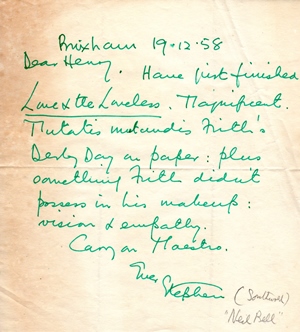 Brixham 19.12.58
Dear Henry. Have just finished
Love & the Loveless. Magnificent.
Mutatis mutandis Frith's
Derby Day on paper: plus
something Frith didn't
possess in his makeup:
vision & empathy.
Carry on Maestro.
Ever
Stephen (Southwold)
"Neil Bell"